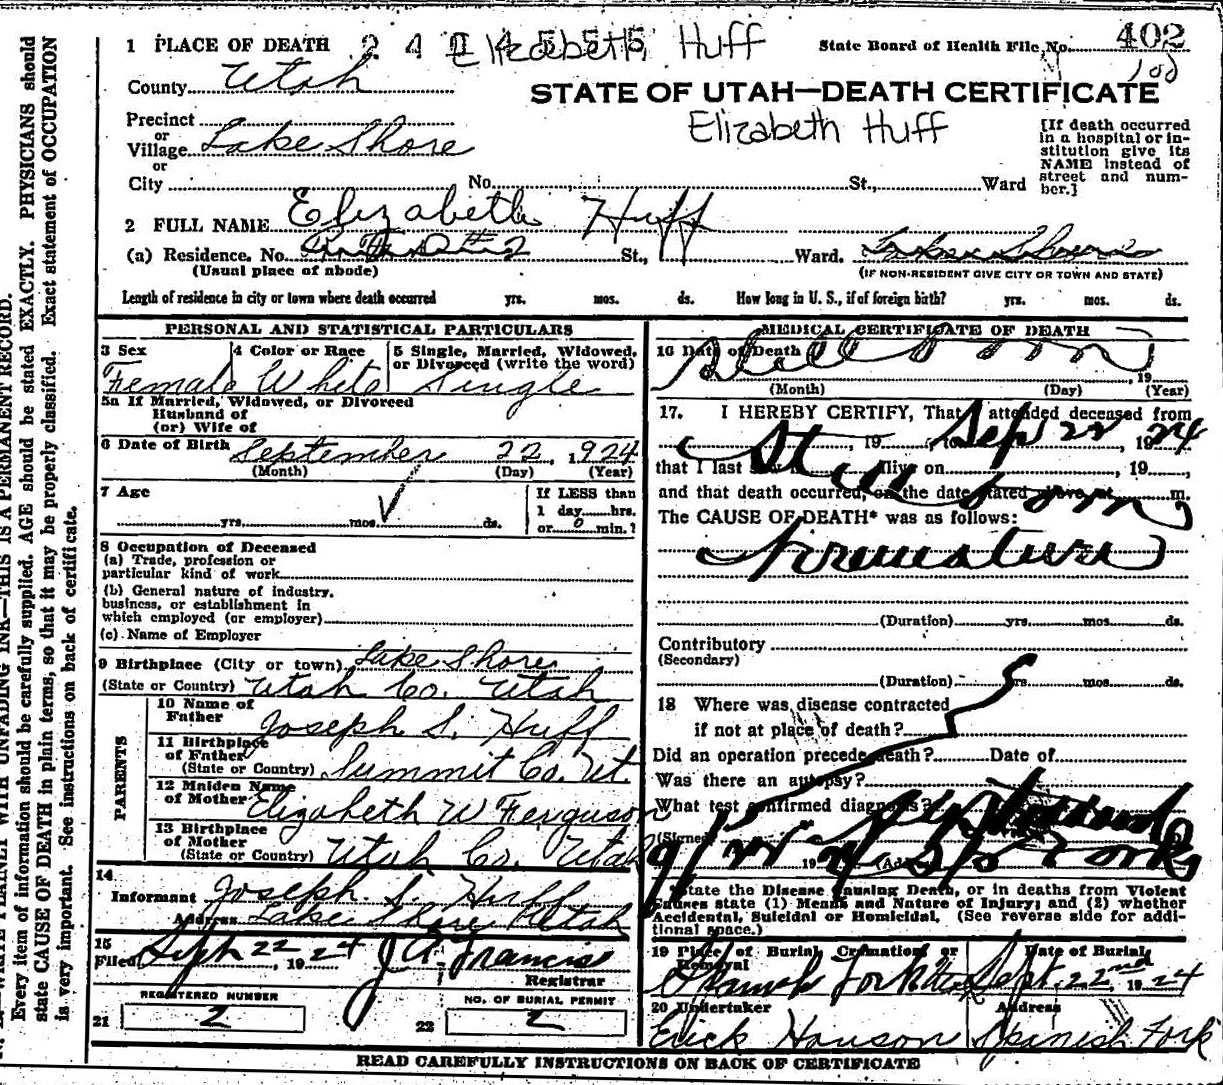 1 PLACE OF DEATH Elizabeth Huff State Board of Health File No. 402
County Utah
STATE OF UTAH—DEATH CERTIFICATE
Elizabeth Huff
Precinct
or
Village Lake Shore
or
City No. St., Ward
[If death occurred
in a hospital or in-
stitution give its
NAME instead of
street and num-
ber.]
2 FULL NAME Elizabeth Huff
(a) Residence. No. St., Ward. Lake Shore
(Usual place of abode) (IF NON-RESIDENT GIVE CITY OR TOWN AND STATE)
Length of residence in city or town where death occurred yrs. mos. ds. How long in U. S., if of foreign birth? yrs. mos. ds.
PERSONAL AND STATISTICAL PARTICULARS
3 Sex 4 Color or Race 5 Single, Married, Widowed,
or Divorced (write the word)
Female White Single
5a If Married, Widowed, or Divorced
Husband of
(or) Wife of
6 Date of Birth September 22, 1924
(Month) (Day) (Year)
7 Age If LESS than
1 day hrs.
yrs. mos. ds. or 0 min.?
8 Occupation of Deceased
(a) Trade, profession or
particular kind of work
(b) General nature of industry,
business, or establishment in
which employed (or employer)
(c) Name of Employer
9 Birthplace (City or town) Lake Shore
(State or Country) Utah Co. Utah
PARENTS
10 Name of
Father Joseph S. Huff
11 Birthplace
of Father
(State or Country) Summit Co. Ut.
12 Maiden Name
of Mother Elizabeth W Ferguson
13 Birthplace
of Mother
(State or Country) Utah Co. Utah
14
Informant Joseph S. Huff
Address Lake Shore Utah
15
Filed Sept 22, 1924 J A Francis
Registrar
REGISTERED NUMBER NO. OF BURIAL PERMIT
21 2 22 2
MEDICAL CERTIFICATE OF DEATH
16 Date of Death Still Born
, 19
(Month) (Day) (Year)
17. I HEREBY CERTIFY, That I attended deceased from
, 19 , to Sep 22, 1924
that I last saw h alive on , 19 ,
and that death occurred, on the date stated above, at m.
Still born
The CAUSE OF DEATH* was as follows:
Premature
(Duration) yrs. mos. ds.
Contributory
(Secondary)
(Duration) yrs. mos. ds.
18 Where was disease contracted
if not at place of death?
Did an operation precede death? Date of
Was there an autopsy?
What test confirmed diagnosis?
(Signed)
9/22, 1924 (Address) Sp Fork
*State the Disease Causing Death, or in deaths from Violent
Causes state (1) Means and Nature of Injury; and (2) whether
Accidental, Suicidal or Homicidal. (See reverse side for addi-
tional space.)
19 Place of Burial, Cremation or Date of Burial
Removal
Spanish Fork Sept. 22nd, 1924
20 Undertaker Address
Erick Hanson Spanish Fork
READ CAREFULLY INSTRUCTIONS ON BACK OF CERTIFICATE
WRITE PLAINLY WITH UNFADING INK—THIS IS A PERMANENT RECORD.
Every item of information should be carefully supplied. AGE should be stated EXACTLY. PHYSICIANS should
state CAUSE OF DEATH in plain terms, so that it may be properly classified. Exact statement of OCCUPATION
is very important. See instructions on back of certificate.